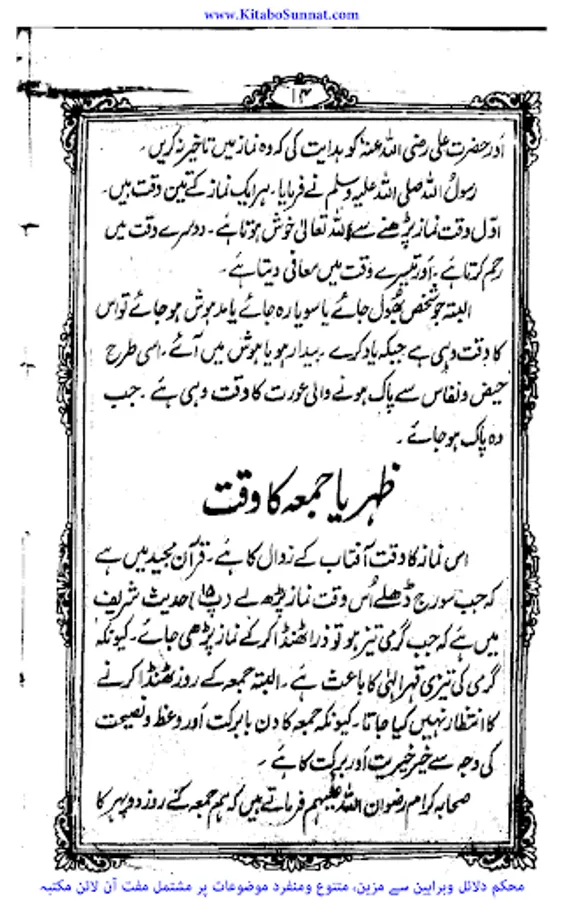 www.KitaboSunnat.com
۱۴
اور حضرت علی رضی اللہ عنہ کو ہدایت کی کہ وہ نماز میں تاخیر نہ کریں۔
رسول اللہ صلی اللہ علیہ وسلم نے فرمایا۔ ہر ایک نماز کے تین وقت ہیں۔
اوّل وقت نماز پڑھنے سے اللہ تعالیٰ خوش ہوتا ہے۔ دوسرے وقت میں
رحم کرتا ہے۔ اور تیسرے وقت میں معافی دیتا ہے۔
البتہ جو شخص بھول جائے یا سویا رہ جائے یا مدہوش ہو جائے تو اس
کا وقت وہی ہے جبکہ یاد کرے۔ بیدار ہو یا ہوش میں آئے۔ اسی طرح
حیض و نفاس سے پاک ہونے والی عورت کا وقت وہی ہے۔ جب
وہ پاک ہو جائے۔
ظہر یا جمعہ کا وقت
اس نماز کا وقت آفتاب کے زوال کا ہے۔ قرآن مجید میں ہے
کہ جب سورج ڈھلے اُس وقت نماز پڑھ لے (پ ۱۵) حدیث شریف
میں ہے کہ جب گرمی تیز ہو تو ذرا ٹھنڈا کر کے نماز پڑھی جائے۔ کیونکہ
گرمی کی تیزی قہر الہٰی کا باعث ہے۔ البتہ جمعہ کے روز ٹھنڈا کرنے
کا انتظار نہیں کیا جاتا۔ کیونکہ جمعہ کا دن بابرکت اور وعظ و نصیحت
کی وجہ سے خیر خیریت اور برکت کا ہے۔
صحابہ کرام رضوان اللہ علیہم فرماتے ہیں کہ ہم جمعہ کے روز دوپہر کا
محکم دلائل وبراہین سے مزین، متنوع ومنفرد موضوعات پر مشتمل مفت آن لائن مکتبہ